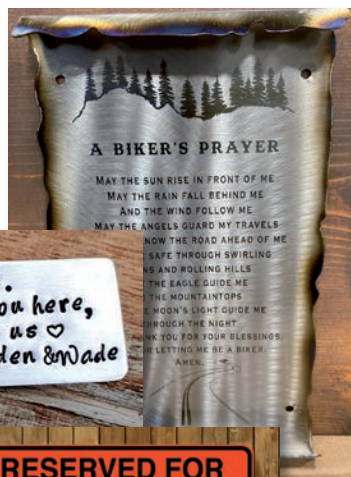 A BIKER'S PRAYER
MAY THE SUN RISE IN FRONT OF ME
MAY THE RAIN FALL BEHIND ME
AND THE WIND FOLLOW ME
MAY THE ANGELS GUARD MY TRAVELS
NOW THE ROAD AHEAD OF ME
SAFE THROUGH SWIRLING
NS AND ROLLING HILLS
THE EAGLE GUIDE ME
THE MOUNTAINTOPS
MOON'S LIGHT GUIDE ME
THROUGH THE NIGHT
YOU FOR YOUR BLESSINGS
LETTING ME BE A BIKER.
AMEN.
ou here,
us ♡
den & Wade
RESERVED FOR